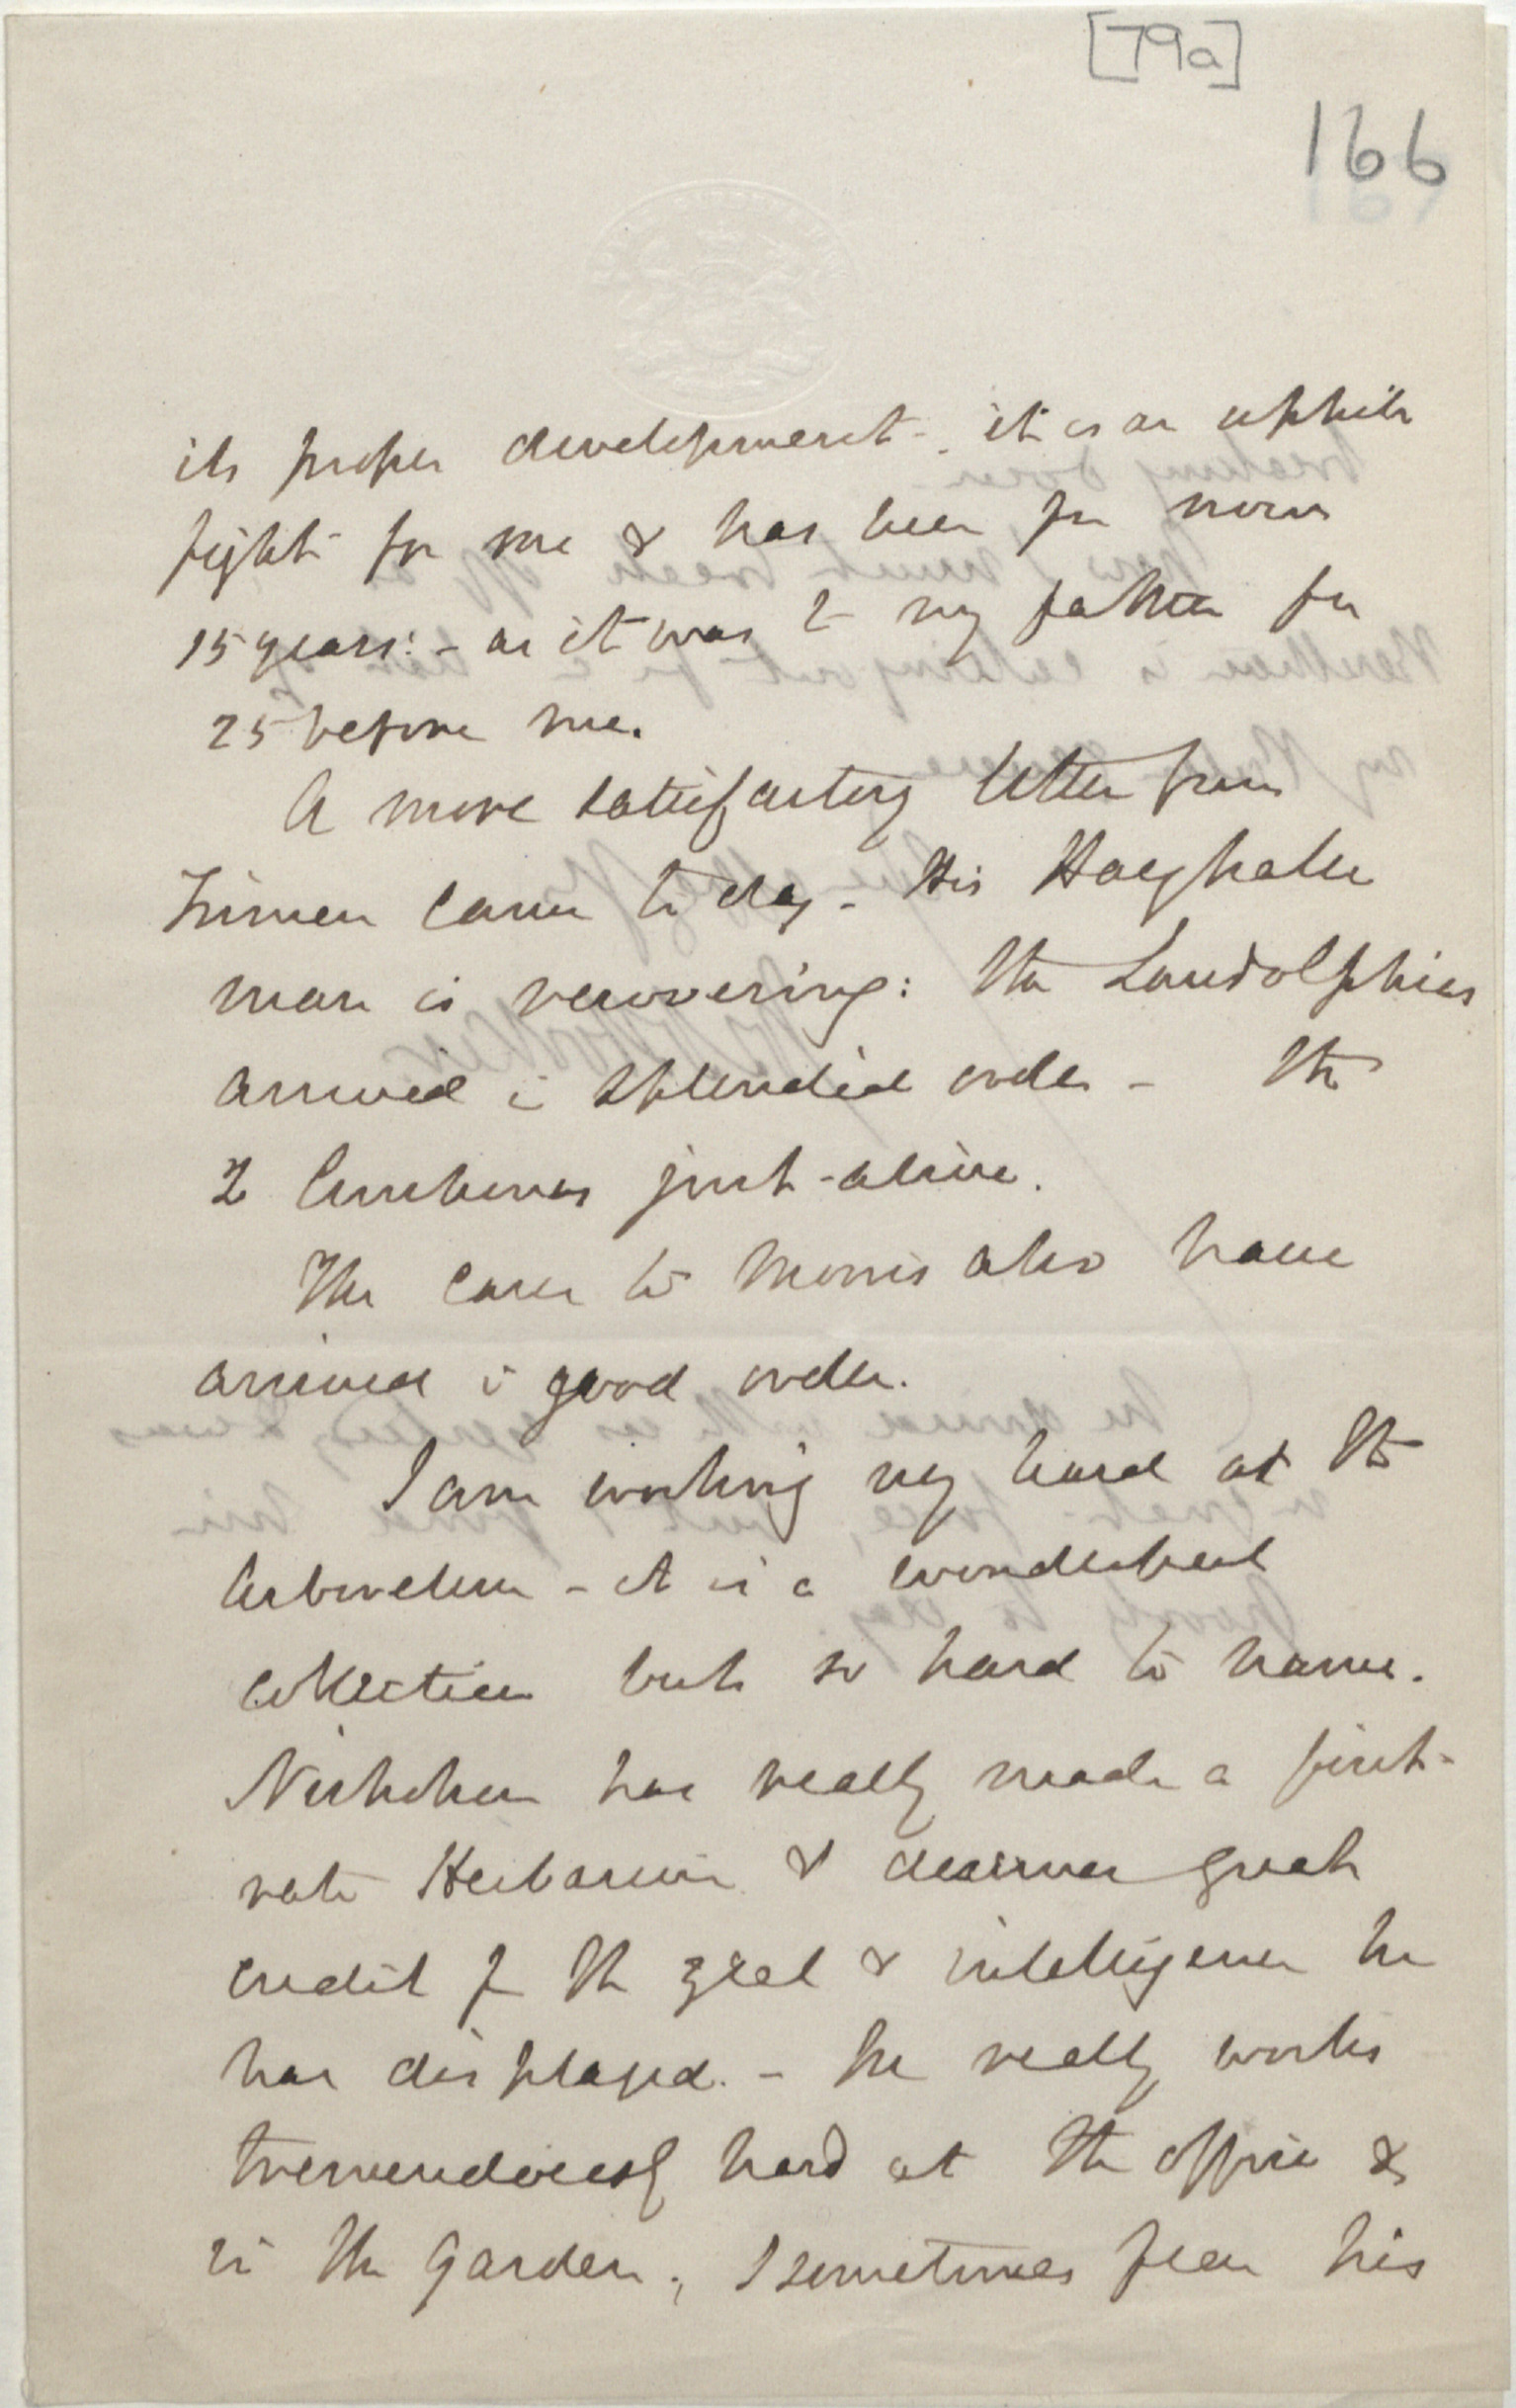 [79a]
166
its proper development - it is an uphill
fight for me & has been for now
15 years: - as it was to my father for
25 before me.
A more satisfactory letter from
Trimen came to day - His
man is recovering: the Landolphias
arrived in splendid order - The
2 just alive.
The cases to Morris also have
arrived in good order.
I am working very hard at the
Arboretum - it is a wonderful
collection but so hard to name.
Nicholson has really made a first-
rate Herbarium & deserves great
credit for the zeal & intelligence he
has displayed. - he really works
tremendously hard at the office &
in the Garden, I sometimes fear his